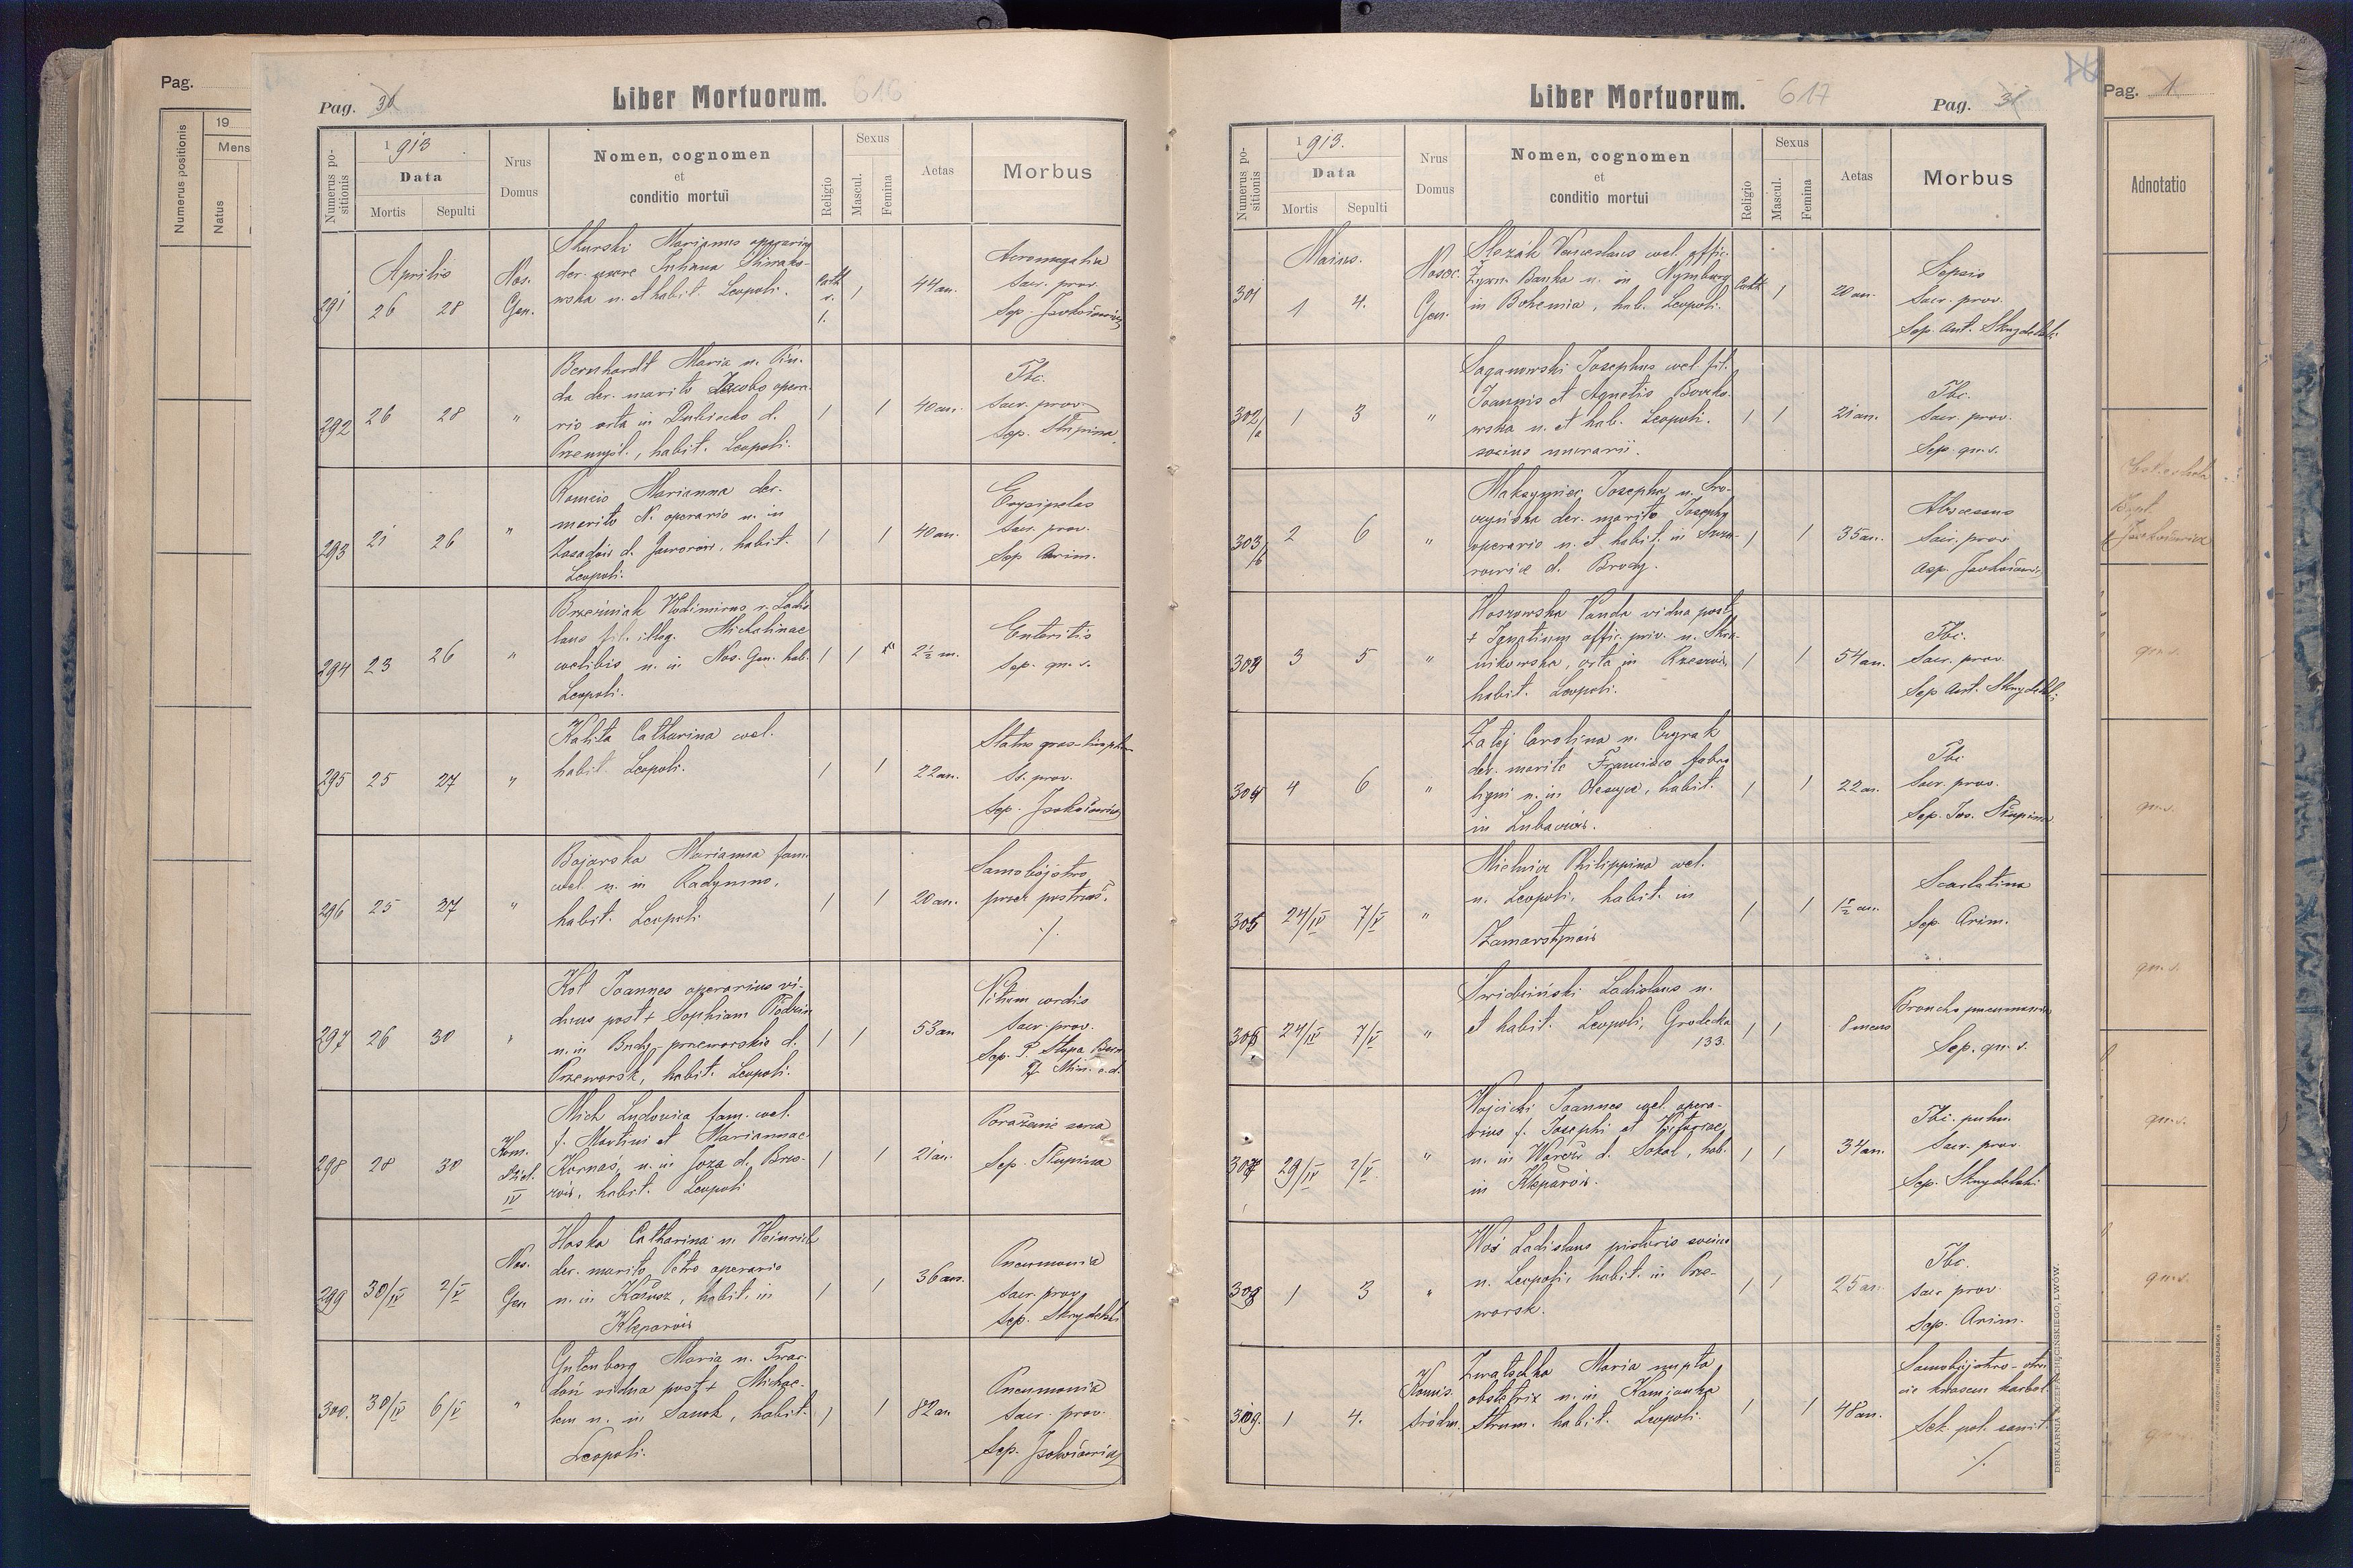 Pag.
Numerus positionis
19
Mens
Natus
Pag. 30
Liber Mortuorum.
616
Numerus positionis
1913
Data
Mortis
Sepulti
Nrus Domus
Nomen, cognomen
et
conditio mortui
Religio
Sexus
Mascul.
Femina
Aetas
Morbus
291
Aprilis
26 28
Nos.
Gen.
Skurski Marianus operarius
der. uxore Juliana
n. et habit. Leopoli.
cath
r.
l.
1
44 an.
Acromegalia
Sacr. prov.
Sep.
292
26 28 "
Bernhardt Maria n.
da der. marito Jacobo opera-
rio orta in Dubiecko d.
Przemyśl., habit. Leopoli.
1 1
40 an.
Tbc.
Sacr. prov.
Sep. Słupina
293
21 26 "
Marianna der.
marito N. operario n. in
d. Jaworów, habit.
Leopoli.
1 1
40 an.
Erysipelas
Sacr. prov.
Sep. Arim.
294
23 26 "
Brzeźniak Vlodimirus v. Ladis
laus fil. illeg. Michalinae
coelibis n. in Nos. Gen. hab.
Leopoli.
1 1
2½ m.
Enteritis
Sep. qu. s.
295
25 27 "
Kalita Catharina coel.
habit. Leopoli.
1 1
22 an.
Status
Ss. prov.
Sep.
296
25 27 "
Bojarska Marianna fam.
coel. n. in Radymno,
habit. Leopoli
1 1
20 an.
Samobójstwo
przez postrzał.
./.
297
26 30 "
Kot Joannes operarius vi-
duus post + Sophiam
n. in Budy-przeworskie d.
Przeworsk, habit. Leopoli.
1 1
53 an
Vitium cordis
Sacr. prov.
Sep. P. Stopa
298
28 30
Kom.
Dziel.
IV
Mich Ludovica fam. coel.
f. Martini et Mariannae
Kornaś, n. in d. Brzo-
zów, habit. Leopoli
1 1
21 an.
Porażenie serca
Sep. Słupina
299
30/IV 2/V
Nos.
Gen
Hoska Catharina n. Heinrich
der. marito Petro operario
n. in Kałusz, habit. in
Kleparów
1 1
36 an.
Pneumonia
Sacr. prov.
Sep.
300.
30/IV 6/V "
Gutenberg Maria n.
vidua post + Michae-
lem n. in Sanok, habit.
Leopoli.
1 1
82 an.
Pneumonia
Sacr. prov.
Sep.
Liber Mortuorum.
617
Pag. 31
Numerus positionis
1913.
Data
Mortis
Sepulti
Nrus Domus
Nomen, cognomen
et
conditio mortui
Religio
Sexus
Mascul.
Femina
Aetas
Morbus
301
Maius.
1 4.
Nosoc.
Gen.
Ślezák Venceslaus coel. offic.
Banka n. in Nymburg
in Bohemia, hab. Leopoli.
Cath
1
20 an.
Sepsis
Sacr. prov.
Sep. Ant.
302/a
1 3 "
Saganowski Josephus coel. fil.
Joannis et Agnetis Borko-
wska n. et hab. Leopoli.
socius murarii.
1 1
21 an.
Tbc.
Sacr. prov.
Sep. qu. s.
303/b
2 6 "
Maksymiec Josepha n.
der. marito Josepho
operario n. et habit. in
d. Brody.
1 1
35 an.
Abscessus
Sacr. prov
3 5 "
Hoszowska Vanda vidua post
+ Ignatium offic. priv. n.
orta in Rzeszów,
habit. Leopoli.
1 1
54 an.
Tbc.
Sacr. prov.
Sep Ant.
304
4 6 "
Zatej Carolina n.
der. marito Francisco fabro
ligni n. in Oleszyce, habit.
in Lubaczów.
1 1
22 an.
Tbc
Sacr. prov.
Sep. Jos. Słupina
305
24/IV 7/V "
Mielnik Philippina coel.
n. Leopoli, habit. in
Zamarstynów
1 1
1½ an.
Scarlatina
Sep. Arim.
306
24/IV 7/V "
Świdziński Ladislaus n.
et habit. Leopoli, Grodecka
133.
1 1
8 mens
Broncho pneumonia
Sep. qu. s.
307
29/IV 2/V. "
Wojcicki Joannes coel. opera-
rius f. Josephi et Victoriae
n. in Waręż d. Sokal, hab.
in Kleparów.
1 1
34 an.
Tbc. pulm.
Sacr. prov.
Sep.
308
1 3 "
Woś Ladislaus pistoris socius
n. Leopoli, habit. in Prze-
worsk.
1 1
25 an.
Tbc.
Sacr prov.
Sep. Arim.
309.
1 4.
Komis.
śródm.
Zwatschka Maria nupta
obstetrix n. in Kamionka
Strum. habit. Leopoli.
1 1
48 an.
Samobójstwo - otru
cie kwasem karbol.
Sek. pol. sanit.
./.
DRUKARNIA JÓZEFA CHĘCIŃSKIEGO, LWÓW.
Pag. 1
Adnotatio
qu. s.
qu. s.
qu. s.
qu. s.
qu. s.